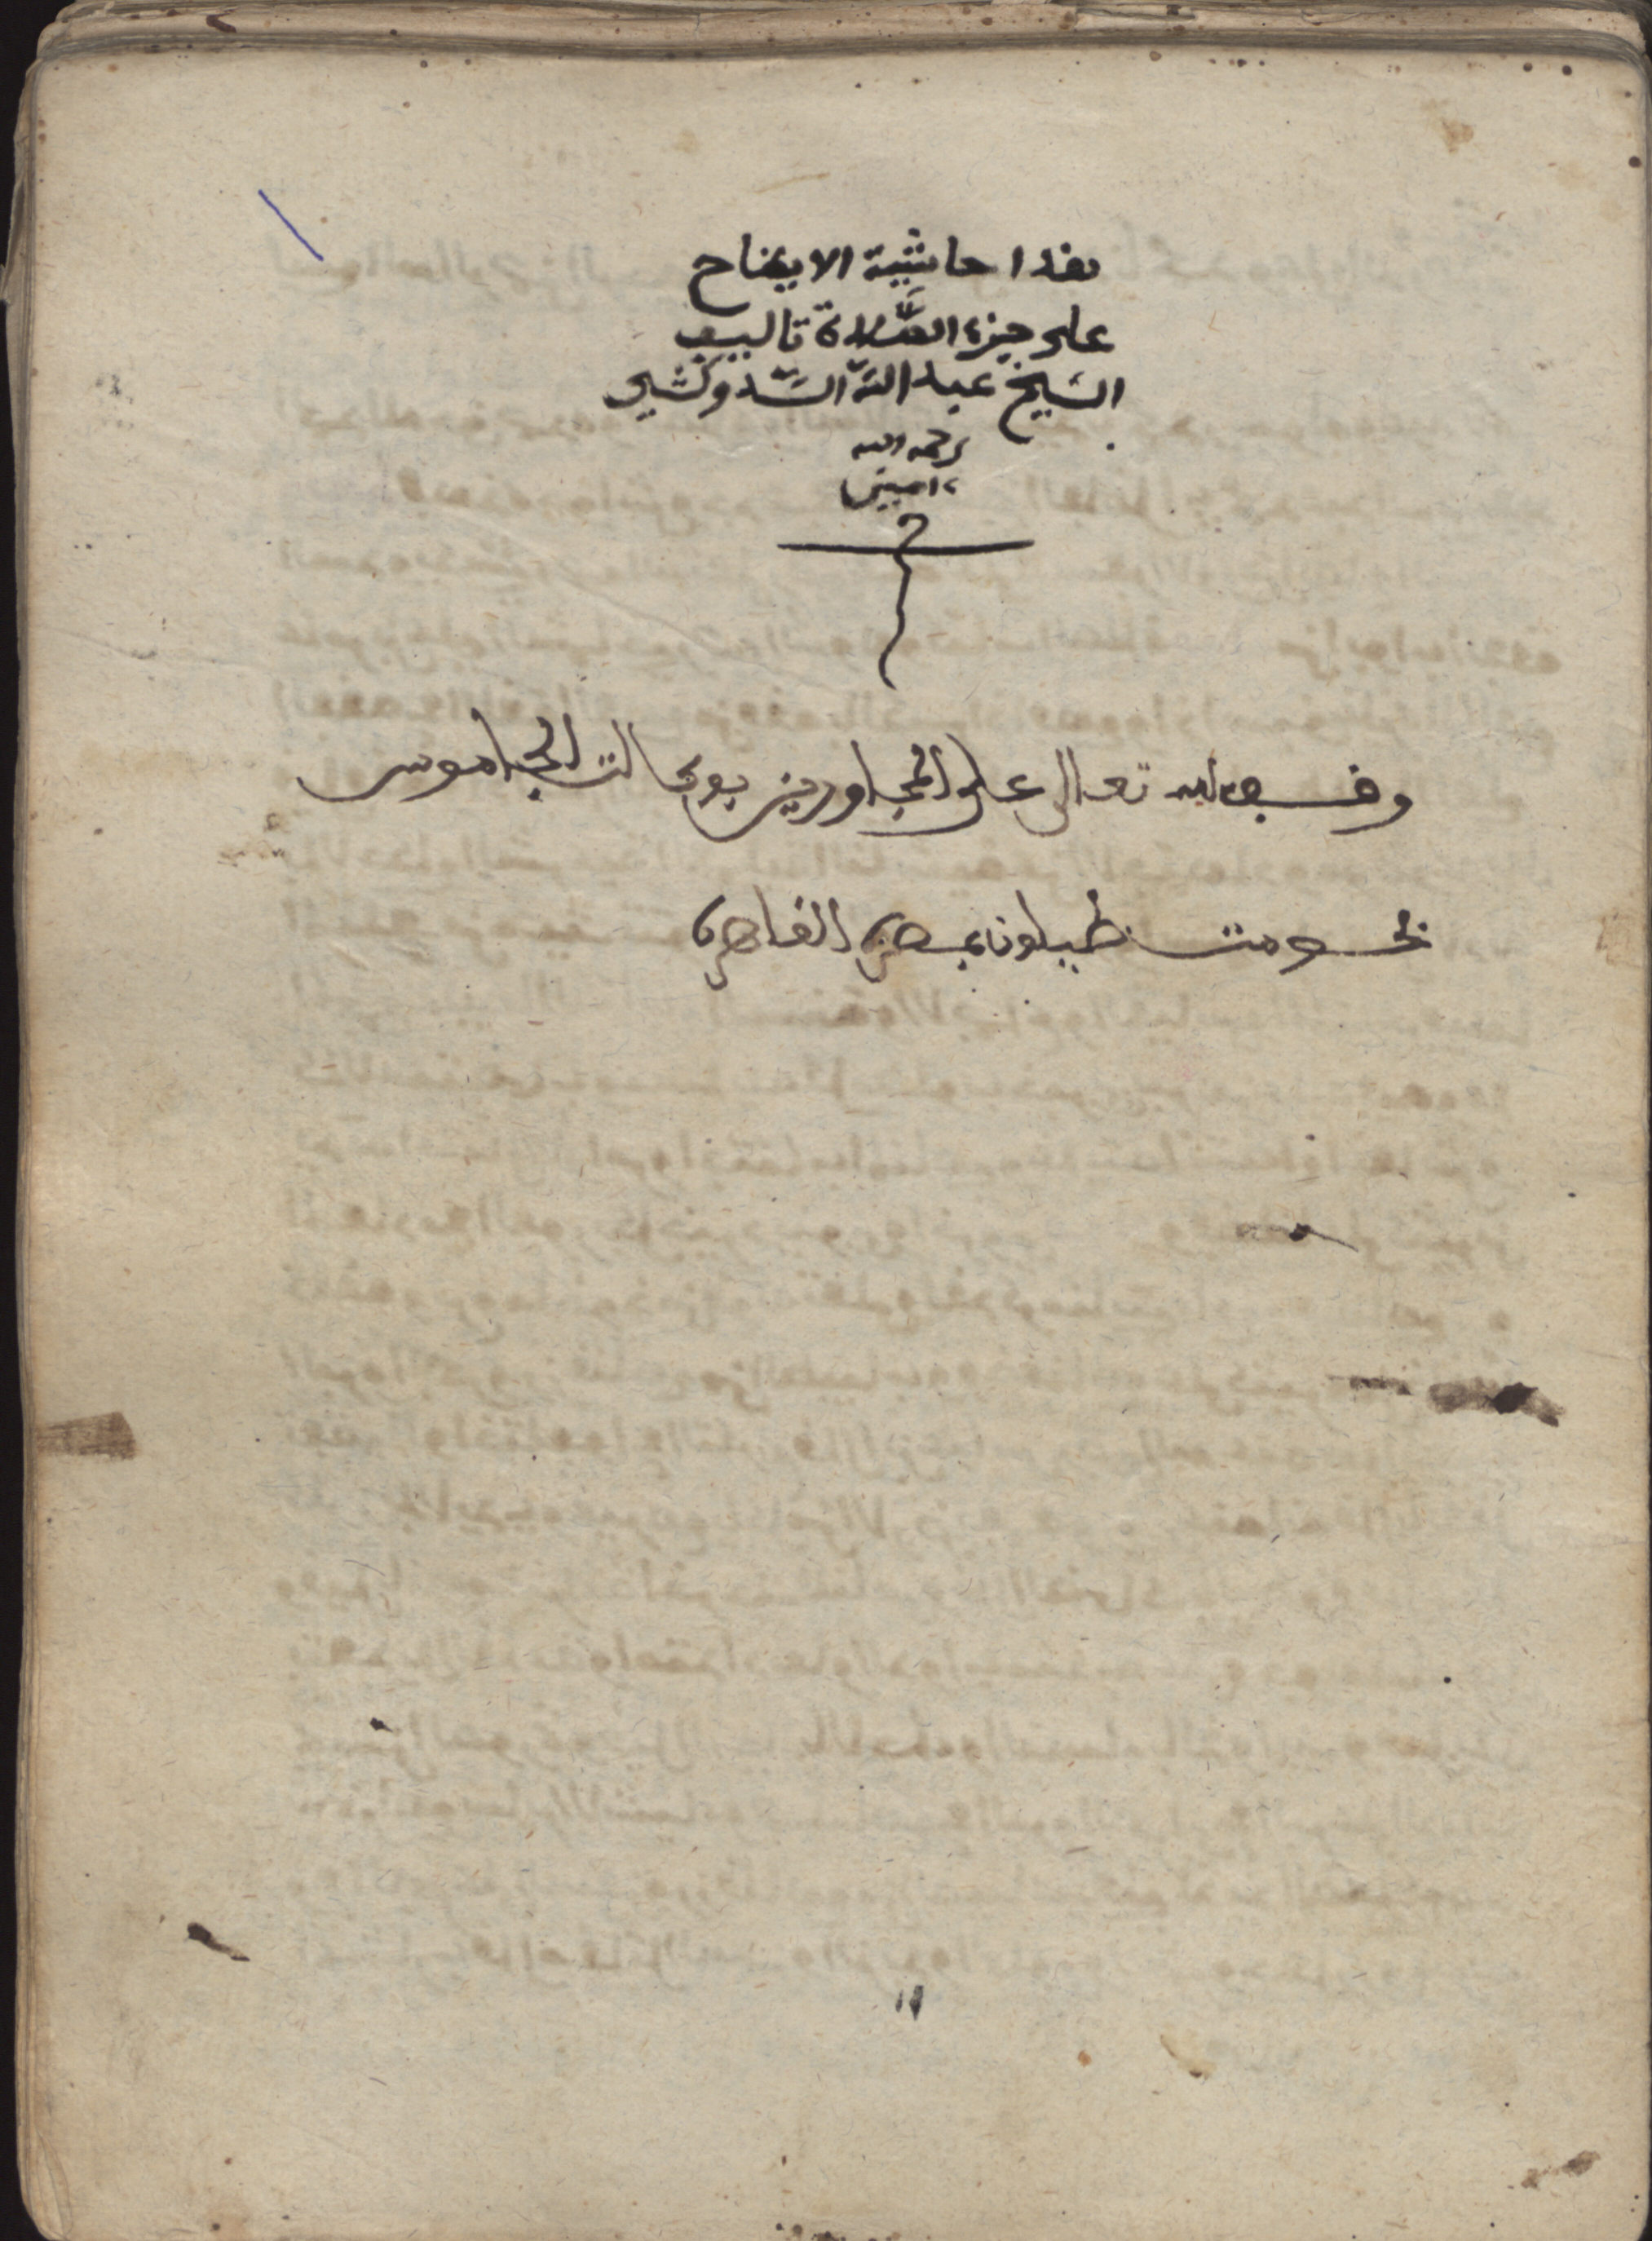 هذا حاشية الايضاح
على جزء الصَّلاة تاليف
الشيخ عبد الله السّدوكشي
رحمه الله
ءامين
وقف لله تعالى على المجاورين بوكالت الجاموس
بحومت طيلون بمصر القاهرة